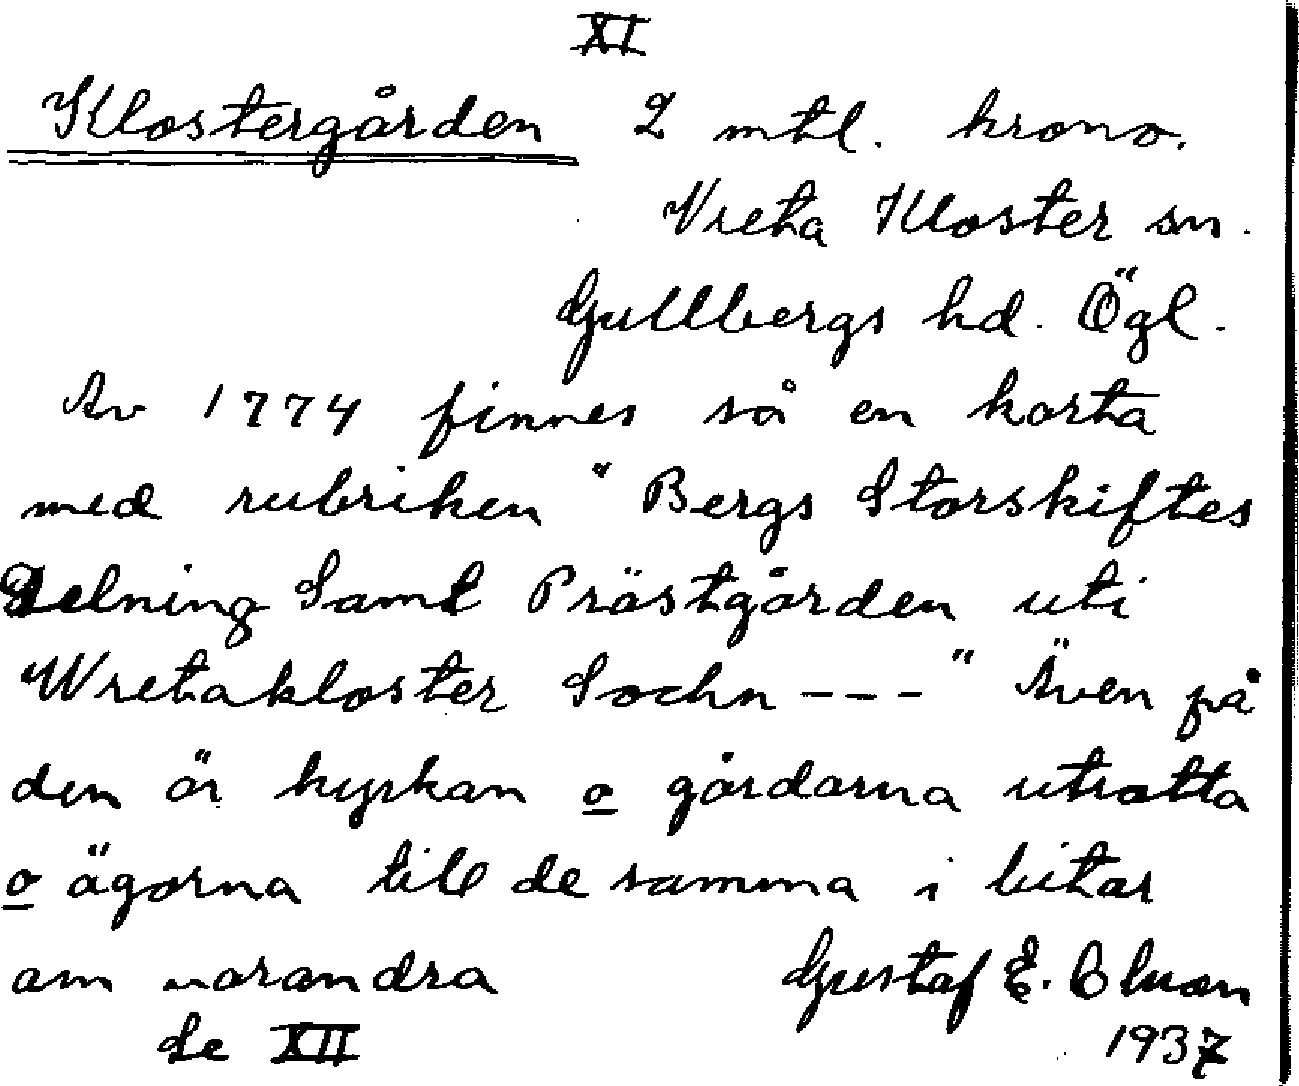 XI
Klostergården 2 mtl. krono.
Vreta Kloster sn.
Gullbergs hd. Ögl.
Av 1774 finnes så en karta
med rubriken "Bergs Storskiftes
Delning Samt Prästgården uti
Wretakloster Sochn --- " Även på
den är kyrkan o gårdarna utsatta
o ägorna till de samma i bitar
om varandra Gustaf E.
Se XII 1937